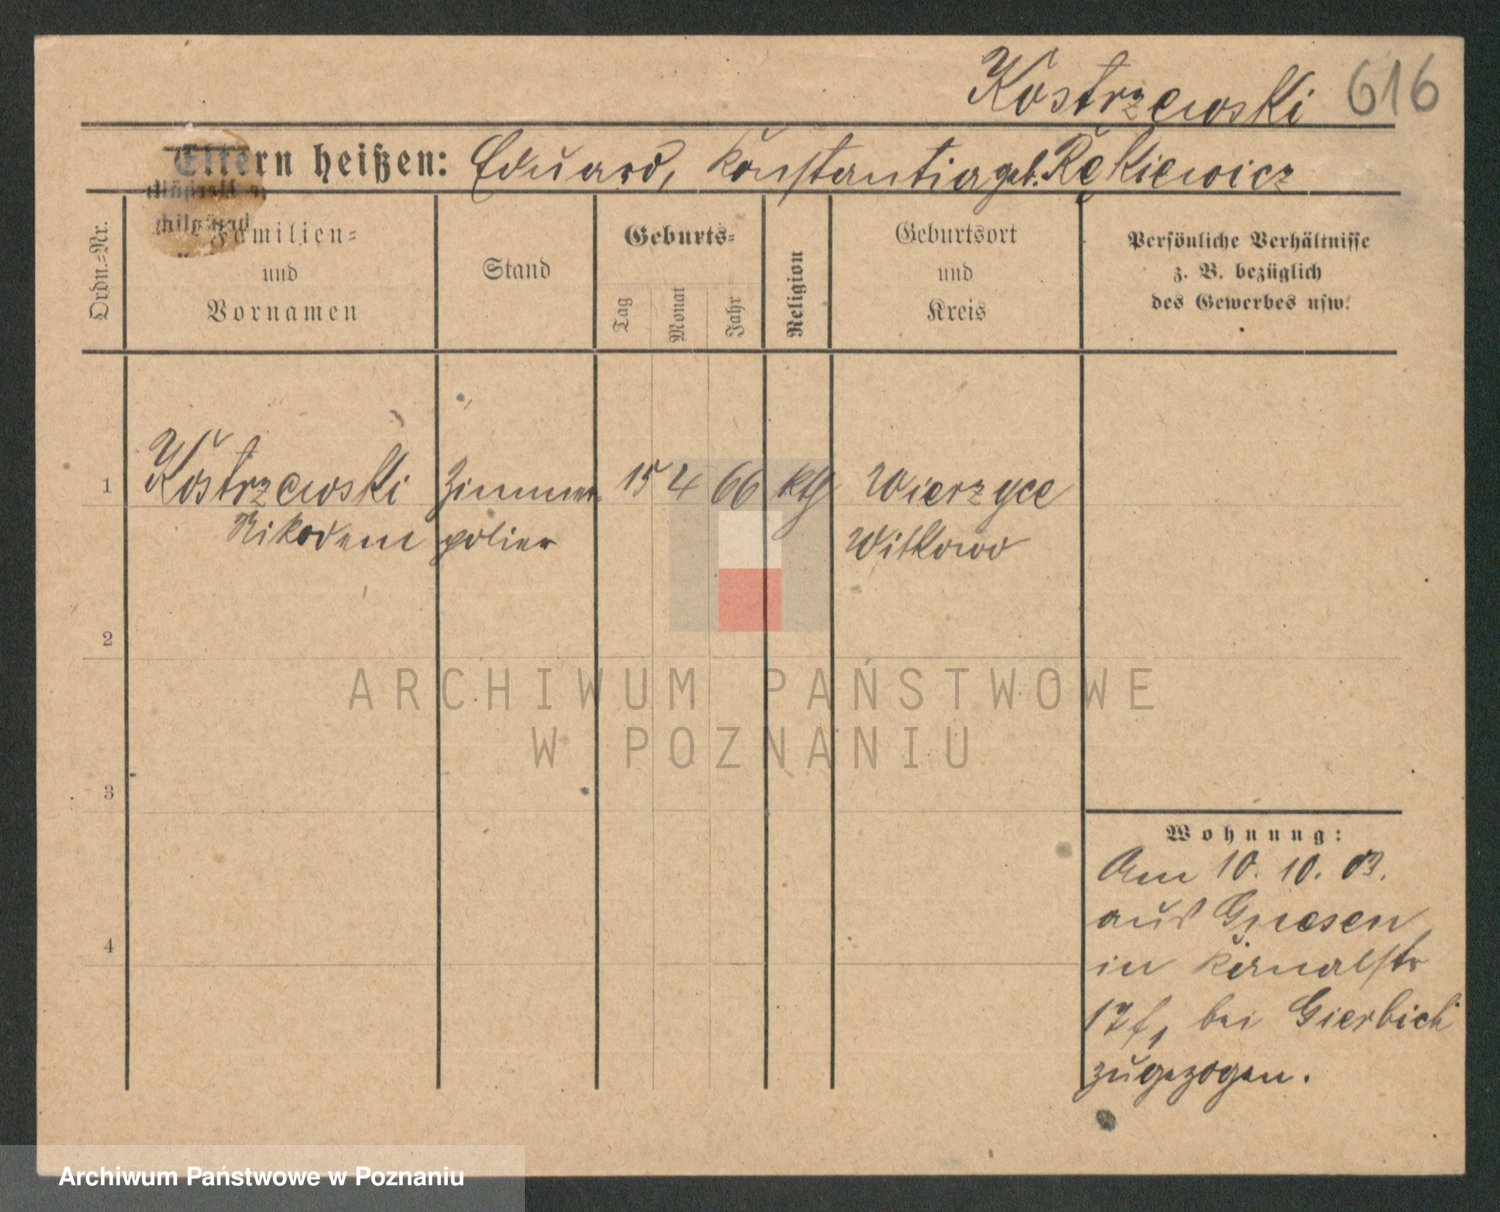 Kostrzewski 616
Eltern heißen: Eduard, Konstantia geb. Rękiewicz
Ordn.-Nr.
Familien-
und
Vornamen
Stand
Geburts-
Tag
Monat
Jahr
Religion
Geburtsort
und
Kreis
Persönliche Verhältnisse
z. B. bezüglich
des Gewerbes usw.
1 Kostrzewski Zimmer 15 4 66 kth Wierzyce
Nikodem polier Witkowo
2
ARCHIWUM PAŃSTWOWE
W POZNANIU
3
Wohnung:
Am 10. 10. 03.
aus Gnesen
in Kanalstr
17 f, bei Gierbich
4
zugezogen.
Archiwum Państwowe w Poznaniu